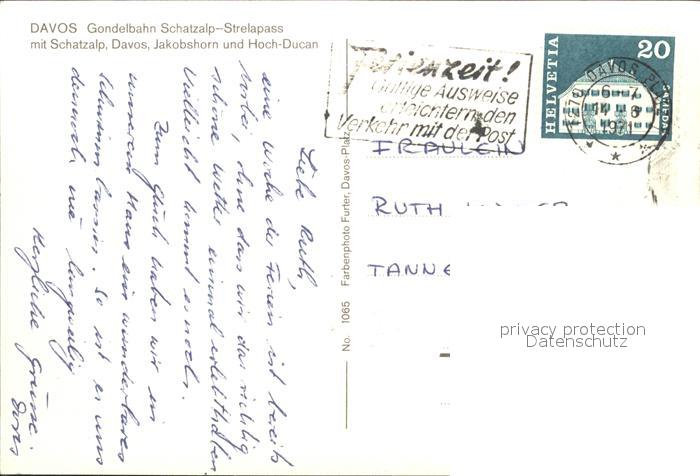 DAVOS Gondelbahn Schatzalp–Strelapass
mit Schatzalp, Davos, Jakobshorn und Hoch-Ducan
Liebe Ruth,
eine Woche der Ferien ist bereits
vorbei, ohne dass wir das richtig
schöne Wetter einmal erlebt haben
Vielleicht kommt es noch.
Zum Glück haben wir in
unserem Haus ein wunderbares
Schwimmbassin. So ist es uns
dennoch nie langweilig
Herzliche Grüsse
Doris
No. 1065 Farbenphoto Furter, Davos-Platz
Ferienzeit!
Gültige Ausweise
erleichtern den
Verkehr mit der Post
HELVETIA
20
DAVOS PL
1971
FRÄULEIN
RUTH
TANNE
privacy protection
Datenschutz